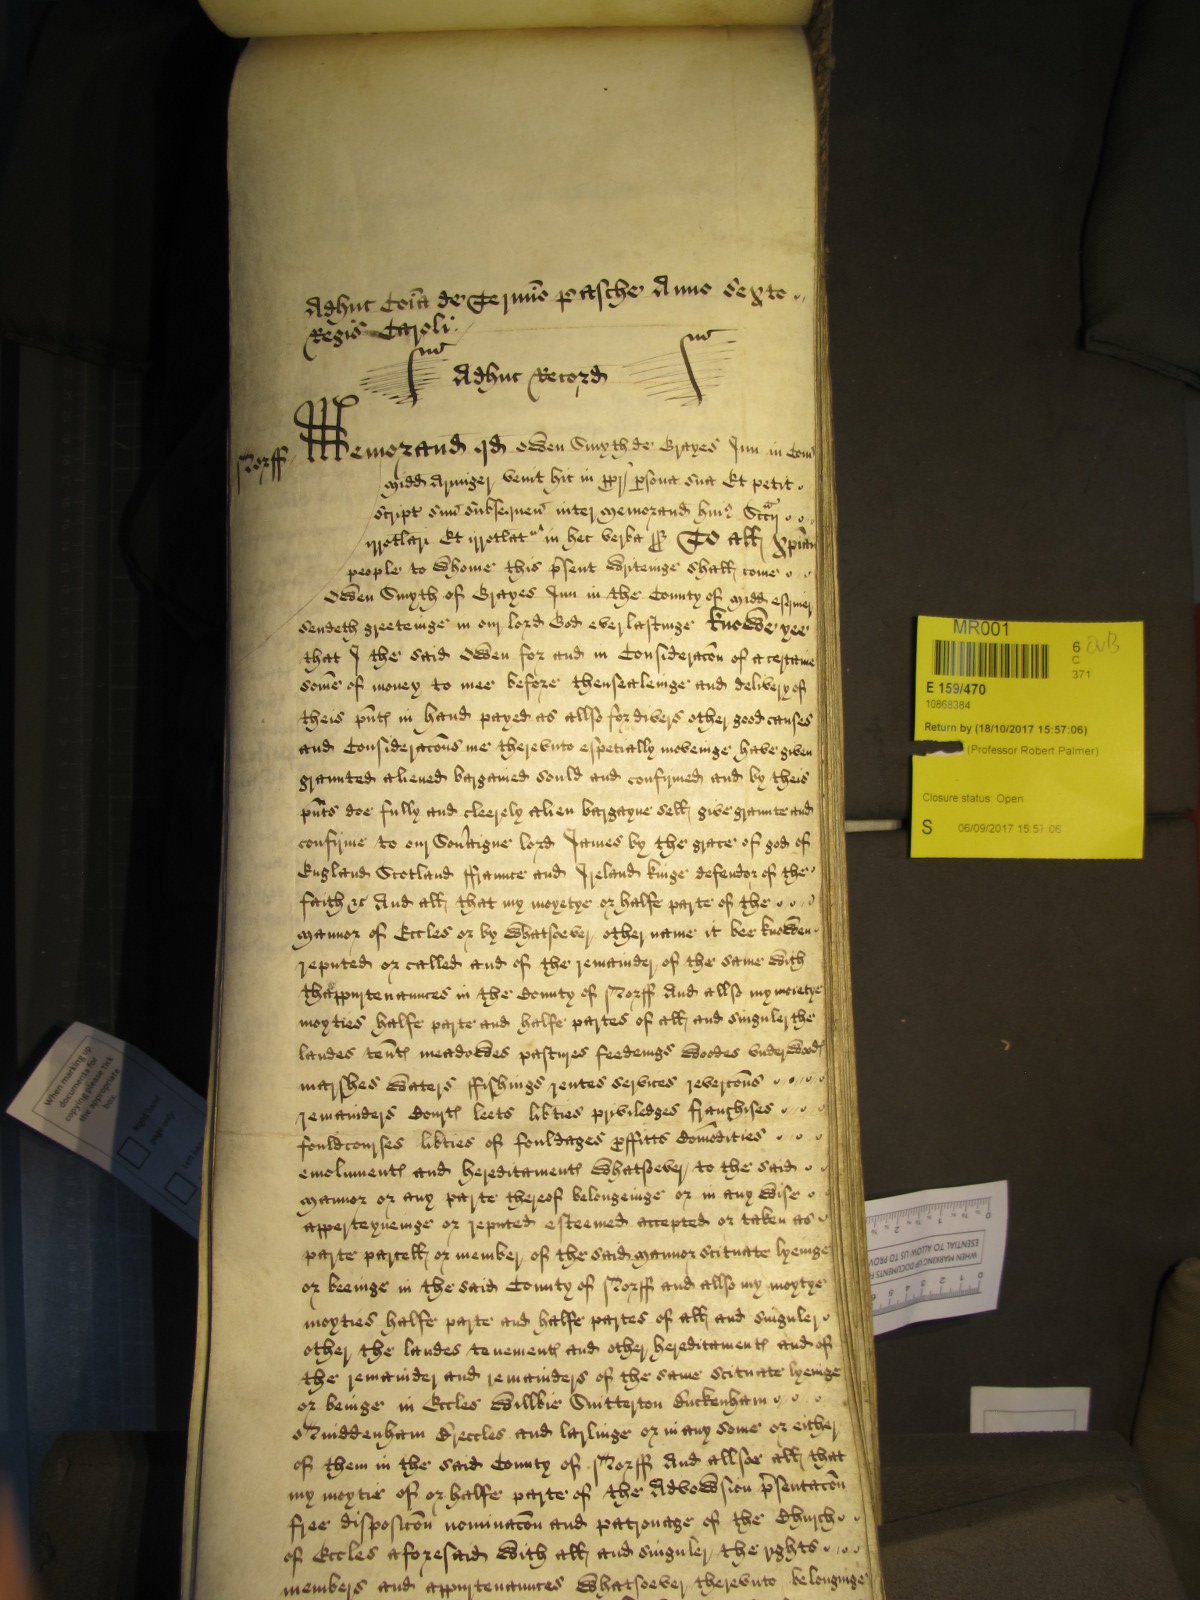 Adhuc Coĩa de Termĩo pasche Anno Sexto
Regis Caroli
Adhuc Record
Norff
Memorand qd Owen Smyth de Grayes Inn in Com
Midd Armiger venit hic in ppr psona sua Et petit
script suũ subsequen inter Memorand hui Sccij
irrotlari Et irrotlat in hec verba To all xpian
people to whome this pñsent writeinge shall come
Owen Smyth of Grayes Inn in the County of Midd esquier
sendeth greeteinge in our lord God everlastinge Knowe yee
that I the said Owen for and in Consideracõn of a certaine
some of money to mee before thensealeinge and delivery of
theis pñts in hand payed as allso for divers other good causes
and Consideracõns me therevnto espetially moveinge have given
graunted aliened bargained sould and confirmed and by theis
pñts doe fully and cleerely alien bargayne sell give graunte and
confirme to our Sov'aigne lord James by the grace of god of
England Scotland ffraunce and Ireland kinge defendor of the
faith &c And all that my moyetye or halfe parte of the
Mannor of Eccles or by whatsoever other name it bee knowen
reputed or called and of the remainder of the same with
thappurtenaunces in the County of Norff And allso my moietye
moyties halfe parte and halfe partes of all and singuler the
landes teñts meadowes pastures feedeings woodes vnderwoods
marshes waters ffishings rentes services revercõns
remainders Courts leets libties priviledges franchises
fouldcourses libties of fouldages pffitts Comodities
emoluments and hereditaments whatsoever to the said
Mannor or any parte thereof belongeinge or in any wise
apperteyneinge or reputed esteemed accepted or taken as
parte parcell or member of the said Mannor scituate lyeinge
or beeinge in the said County of Norff and allso my moytye
moyties halfe parte and halfe partes of all and singuler
other the landes tenements and other hereditaments and of
the remainder and remainders of the same scituate lyeinge
or beinge in Eccles Wilbie Snitterton Buckenham
and larlinge or in any some or either
of them in the said County of Norff And allsoe all that
my moytie of or halfe parte of the Advowsion pñsentacõn
free disposicõn nominacõn and patronage of the Church
of Eccles aforesaid with all and singuler the rights
members and appurtenaunces whatsoever therevnto belonginge
MR001
6
C
371
E 159/470
10868384
Return by (18/10/2017 15:57:06)
(Professor Robert Palmer)
Closure status: Open
S 06/09/2017 15:51:06
When marking up
documents for
copying please tick
the appropriate
box.
Right hand
page only
WHEN MARKING UP DOCUMENTS
ESENTIAL TO ALLOW US TO PROV